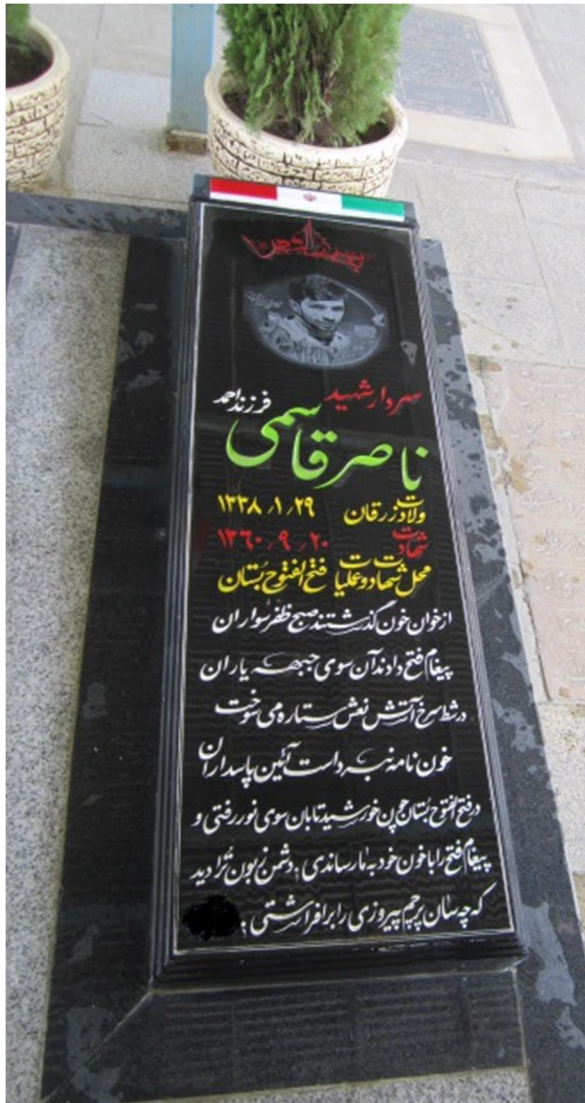 سردار شهید
فرزند احمد
ناصر قاسمی
ولادت زرقان ۱۳۳۸/۱/۲۹
شهادت ۱۳۶۰/۹/۲۰
محل شهادت و عملیات فتح الفتوح بستان
از خوان خون گذشتند صبح ظفر سواران
پیغام فتح دادند آن سوی جبهه یاران
در شط سرخ آتش نعش ستاره می سوخت
خون نامه نبرد است آئین پاسداران
در فتح الفتوح بستان چون خورشید تابان سوی نور رفتی و
پیغام فتح را با خون خود به ما رساندی، دشمن زبون ترا دید
که چه سان پرچم پیروزی را برافراشتی،